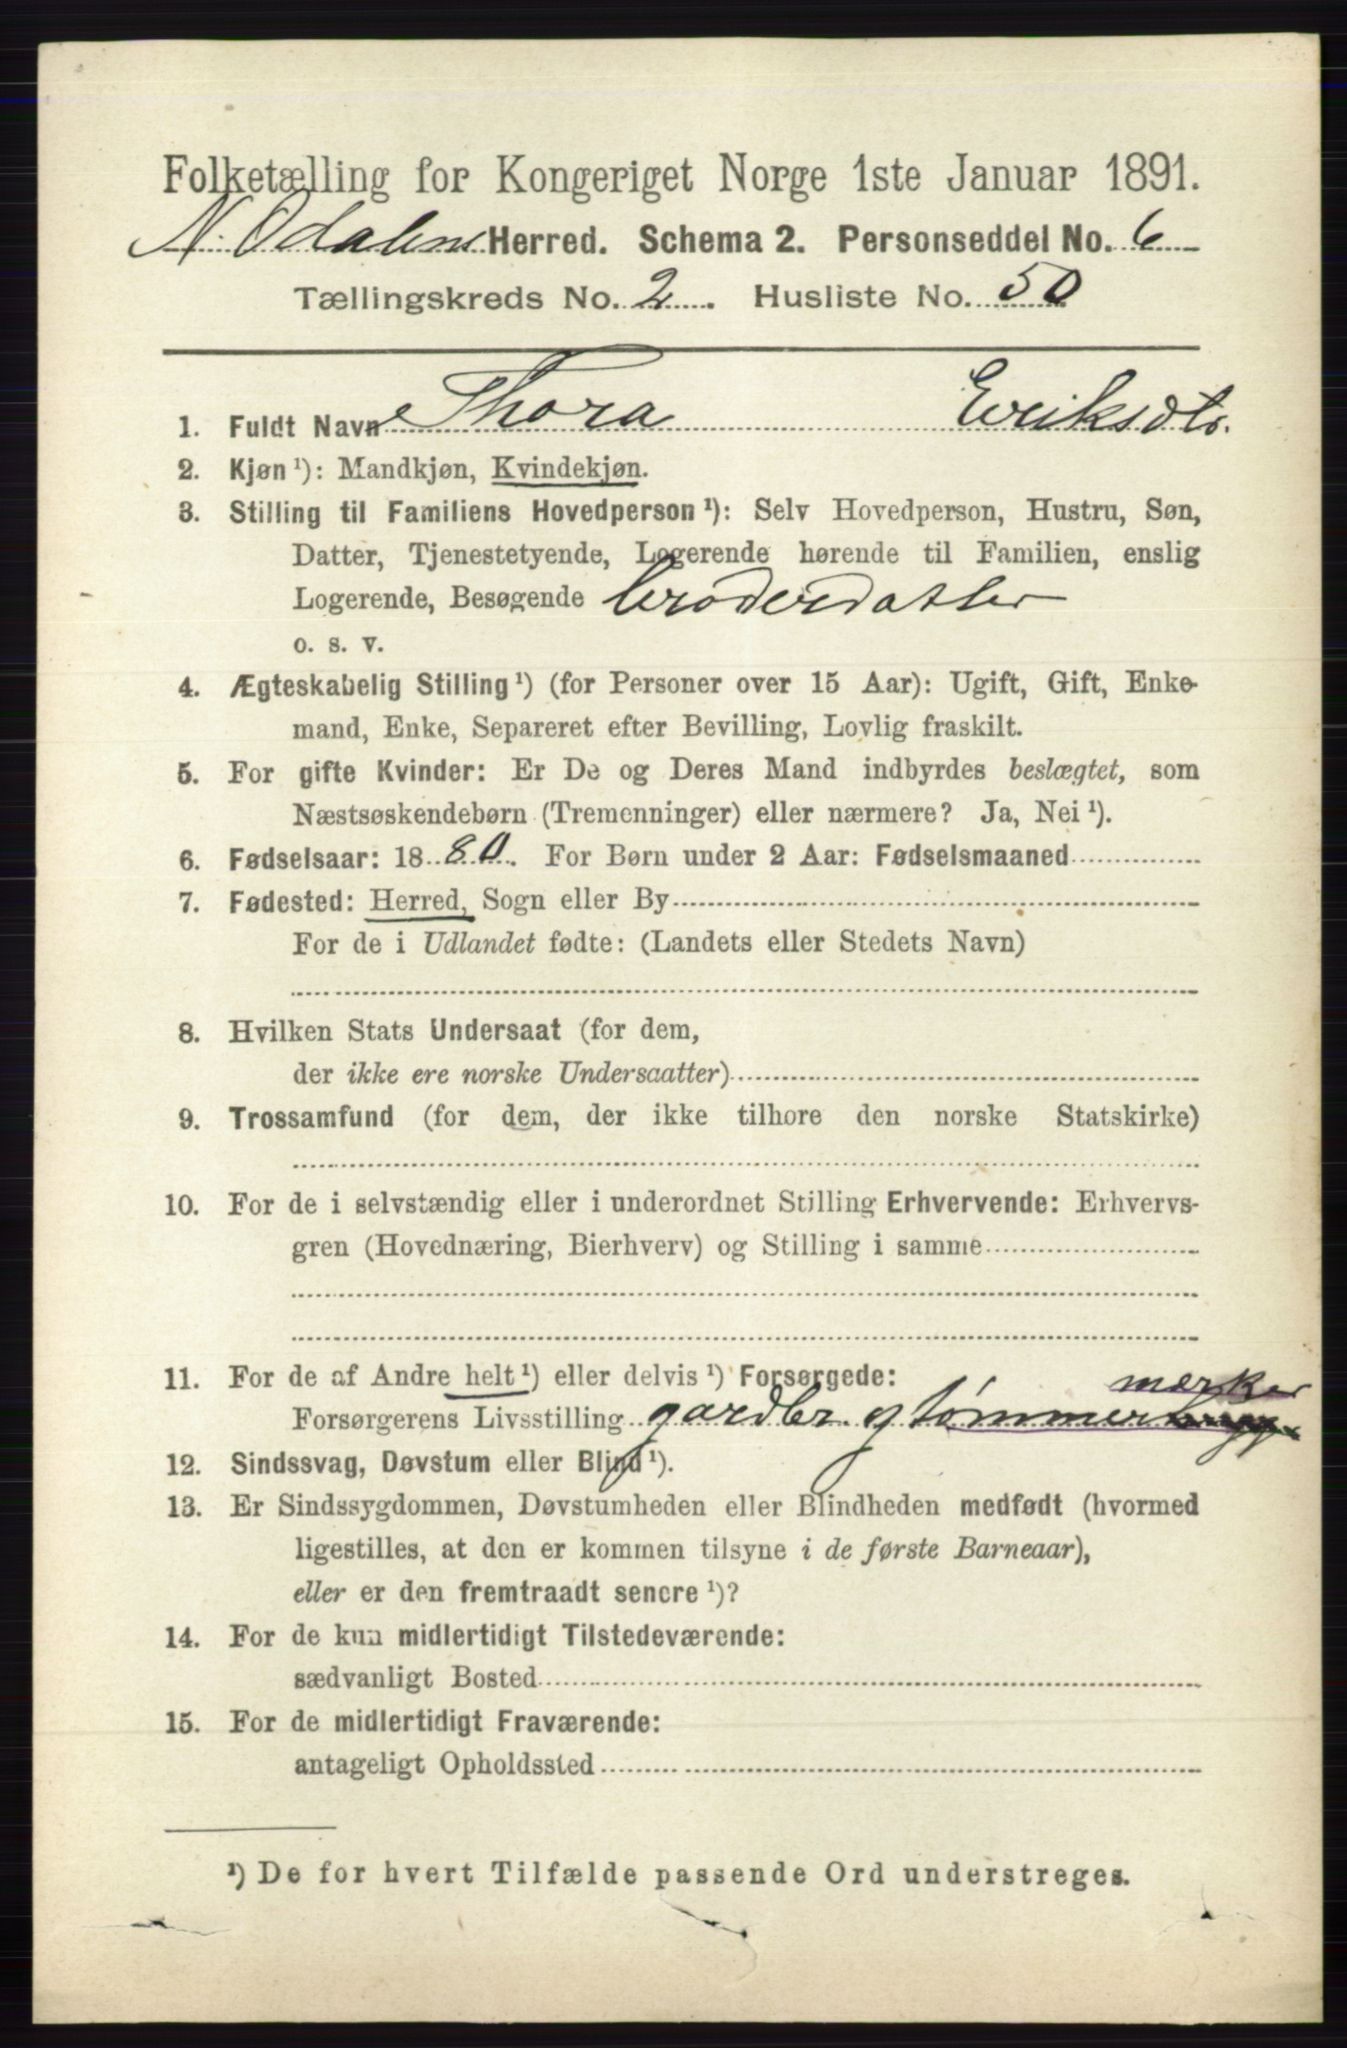 Folketælling for Kongeriget Norge 1ste Januar 1891.
N. Odalens Herred. Schema 2. Personseddel No. 6
Tællingskreds No. 2. Husliste No. 50
1. Fuldt Navn Thora Eriksdtr.
2. Kjøn ¹): Mandkjøn, Kvindekjøn.
3. Stilling til Familiens Hovedperson ¹): Selv Hovedperson, Hustru, Søn,
Datter, Tjenestetyende, Logerende hørende til Familien, enslig
Logerende, Besøgende broderdatter
o. s. v.
4. Ægteskabelig Stilling ¹) (for Personer over 15 Aar): Ugift, Gift, Enke-
mand, Enke, Separeret efter Bevilling, Lovlig fraskilt.
5. For gifte Kvinder: Er De og Deres Mand indbyrdes beslægtet, som
Næstsøskendebørn (Tremenninger) eller nærmere? Ja, Nei ¹).
6. Fødselsaar: 1880. For Børn under 2 Aar: Fødselsmaaned
7. Fødested: Herred, Sogn eller By
For de i Udlandet fødte: (Landets eller Stedets Navn)
8. Hvilken Stats Undersaat (for dem,
der ikke ere norske Undersaatter)
9. Trossamfund (for dem, der ikke tilhøre den norske Statskirke)
10. For de i selvstændig eller i underordnet Stilling Erhvervende: Erhvervs-
gren (Hovednæring, Bierhverv) og Stilling i samme
11. For de af Andre helt ¹) eller delvis ¹) Forsørgede: merker
Forsørgerens Livsstilling gardbr. og tømmer
12. Sindssvag, Døvstum eller Blind ¹).
13. Er Sindssygdommen, Døvstumheden eller Blindheden medfødt (hvormed
ligestilles, at den er kommen tilsyne i de første Barneaar),
eller er den fremtraadt senere ¹)?
14. For de kun midlertidigt Tilstedeværende:
sædvanligt Bosted
15. For de midlertidigt Fraværende:
antageligt Opholdssted
¹) De for hvert Tilfælde passende Ord understreges.